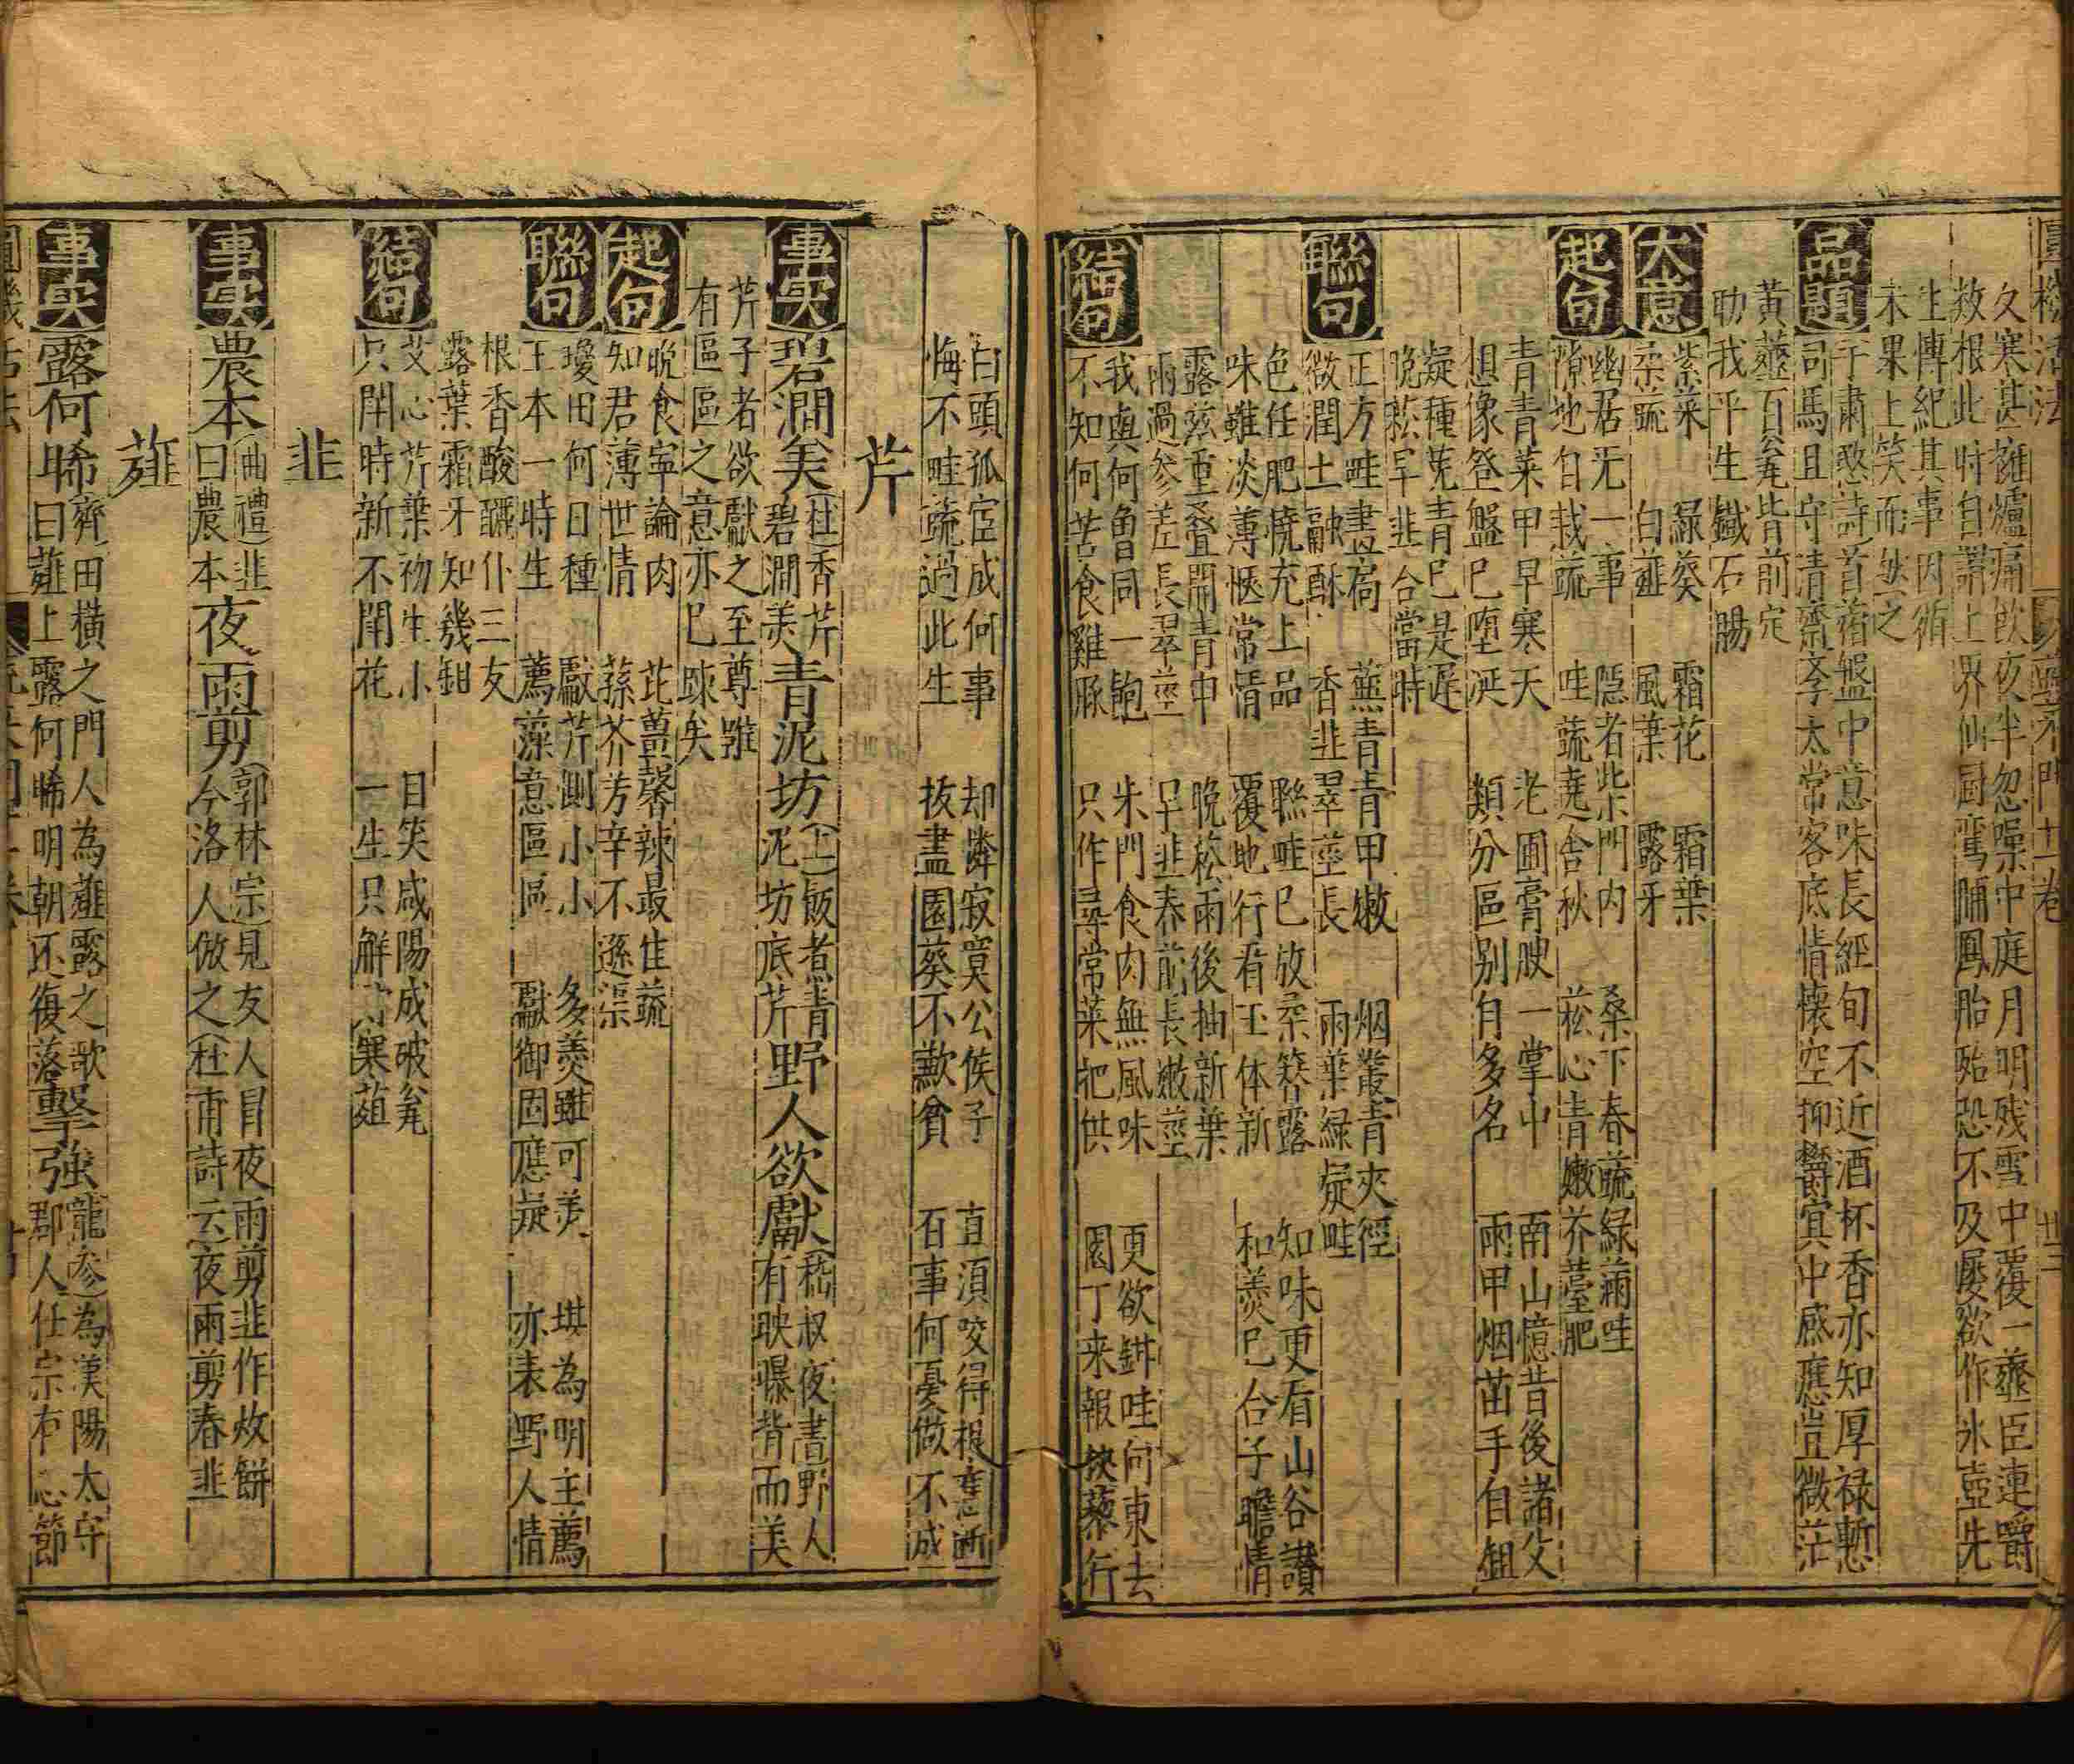 圓機活法 蔬菜門十一卷 廿三
久寒甚擁爐痛飲夜半忽噪中庭月明殘雪中覆一虀臣連嚼
敖根此時自謂上界仙厨鸞脯鳳胎殆恐不及屡欲作氷壺先
生傳紀其事因循
未果上笑而然之
品題
于肅愍詩首蓿盤中意味長經旬不近酒杯香亦知厚禄慙
司馬且守清齋李太常客底情懐空抑欝㝠中感應豈微茫
黄虀百瓮皆前定
助我平生鐵石腸
大意
紫菜 緑葵 霜花 霜葉
柔蔬 白薤 風葉 露牙
起句
幽居无一事 隱者柴門内 桑下春蔬緑滿畦
隙地自栽蔬 畦蔬遶舍秋 菘心青嫩芥薹肥
青青菜甲早寒天 老圃膏腴一掌中 南山憶昔後諸父
想像登盤已墮涎 類分區别自多名 雨甲烟苗手自鉏
凝種蕪青已是遲
晩菘早韭合當時
聯句
正方畦畫扄 蕪青青甲嫩 烟叢青夾徑
欲潤土融酥 香韭翠莖長 雨葉緑凝畦
色任肥磽充上品 聯畦已放柔簪露 知味更看山谷讃
味雖淡薄愜常情 覆地行看玉体新 和羮已合子瞻情
露茲重疊開青甲 晩菘雨後抽新葉
雨過參差長翠莖 早韭春前長嫩莖
結句
我與何曾同一飽 朱門食肉無風味 更欲鉏畦向東去
不知何苦食雞豚 只作尋常菜把供 園丁来報抉藜行
白頭孤宦成何事 却憐寂寞公侯子 直須咬得根虀断
悔不畦蔬過此生 抜盡園葵不歎貧 百事何憂做不成
芹
事实
碧澗羙(杜)香芹碧澗羙青泥坊(上)飯煮青泥坊底芹野人欲獻(嵇叔夜書)野人有映曝背而美
芹子者欲獻之至尊雖
有區區之意亦已踈矣
起句
晩食寕論肉 芘薑馨辣最佳蔬
知君薄世情 蓀芥芳辛不遜渠
聯句
瓊田何日種 獻芹測小小 多羮雖可羙 堪為明主薦
玉本一時生 薦藻意區區 獻御固應嶷 亦表野人情
根香酸釅仆三友
露葉霜牙知幾鉗
結句
艾心芹葉初生小 目笑咸陽成破瓮
只閗時新不閗花 一生只解寒葅
韭
事实
農本(曲禮)韭曰農本夜雨剪(郭林宗)見友人冒夜雨剪韭作炊餅今洛人倣之(杜甫詩云)夜雨剪春韭
薤
事实
露何晞(齊)田横之門人為薤露之歌曰薤上露何晞明朝还復落擊強(龍參)為漢陽太守郡人仕宗有心節